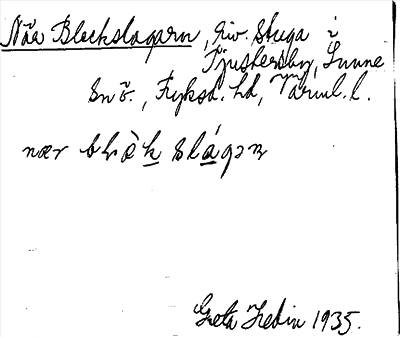 Nåa Bleckslagarn, riv. stuga i
Tjusbersby, Sunne
sn o., Fryksd. hd, Värml. l.
nær blèk slágaɲ
Greta Hedin 1935.